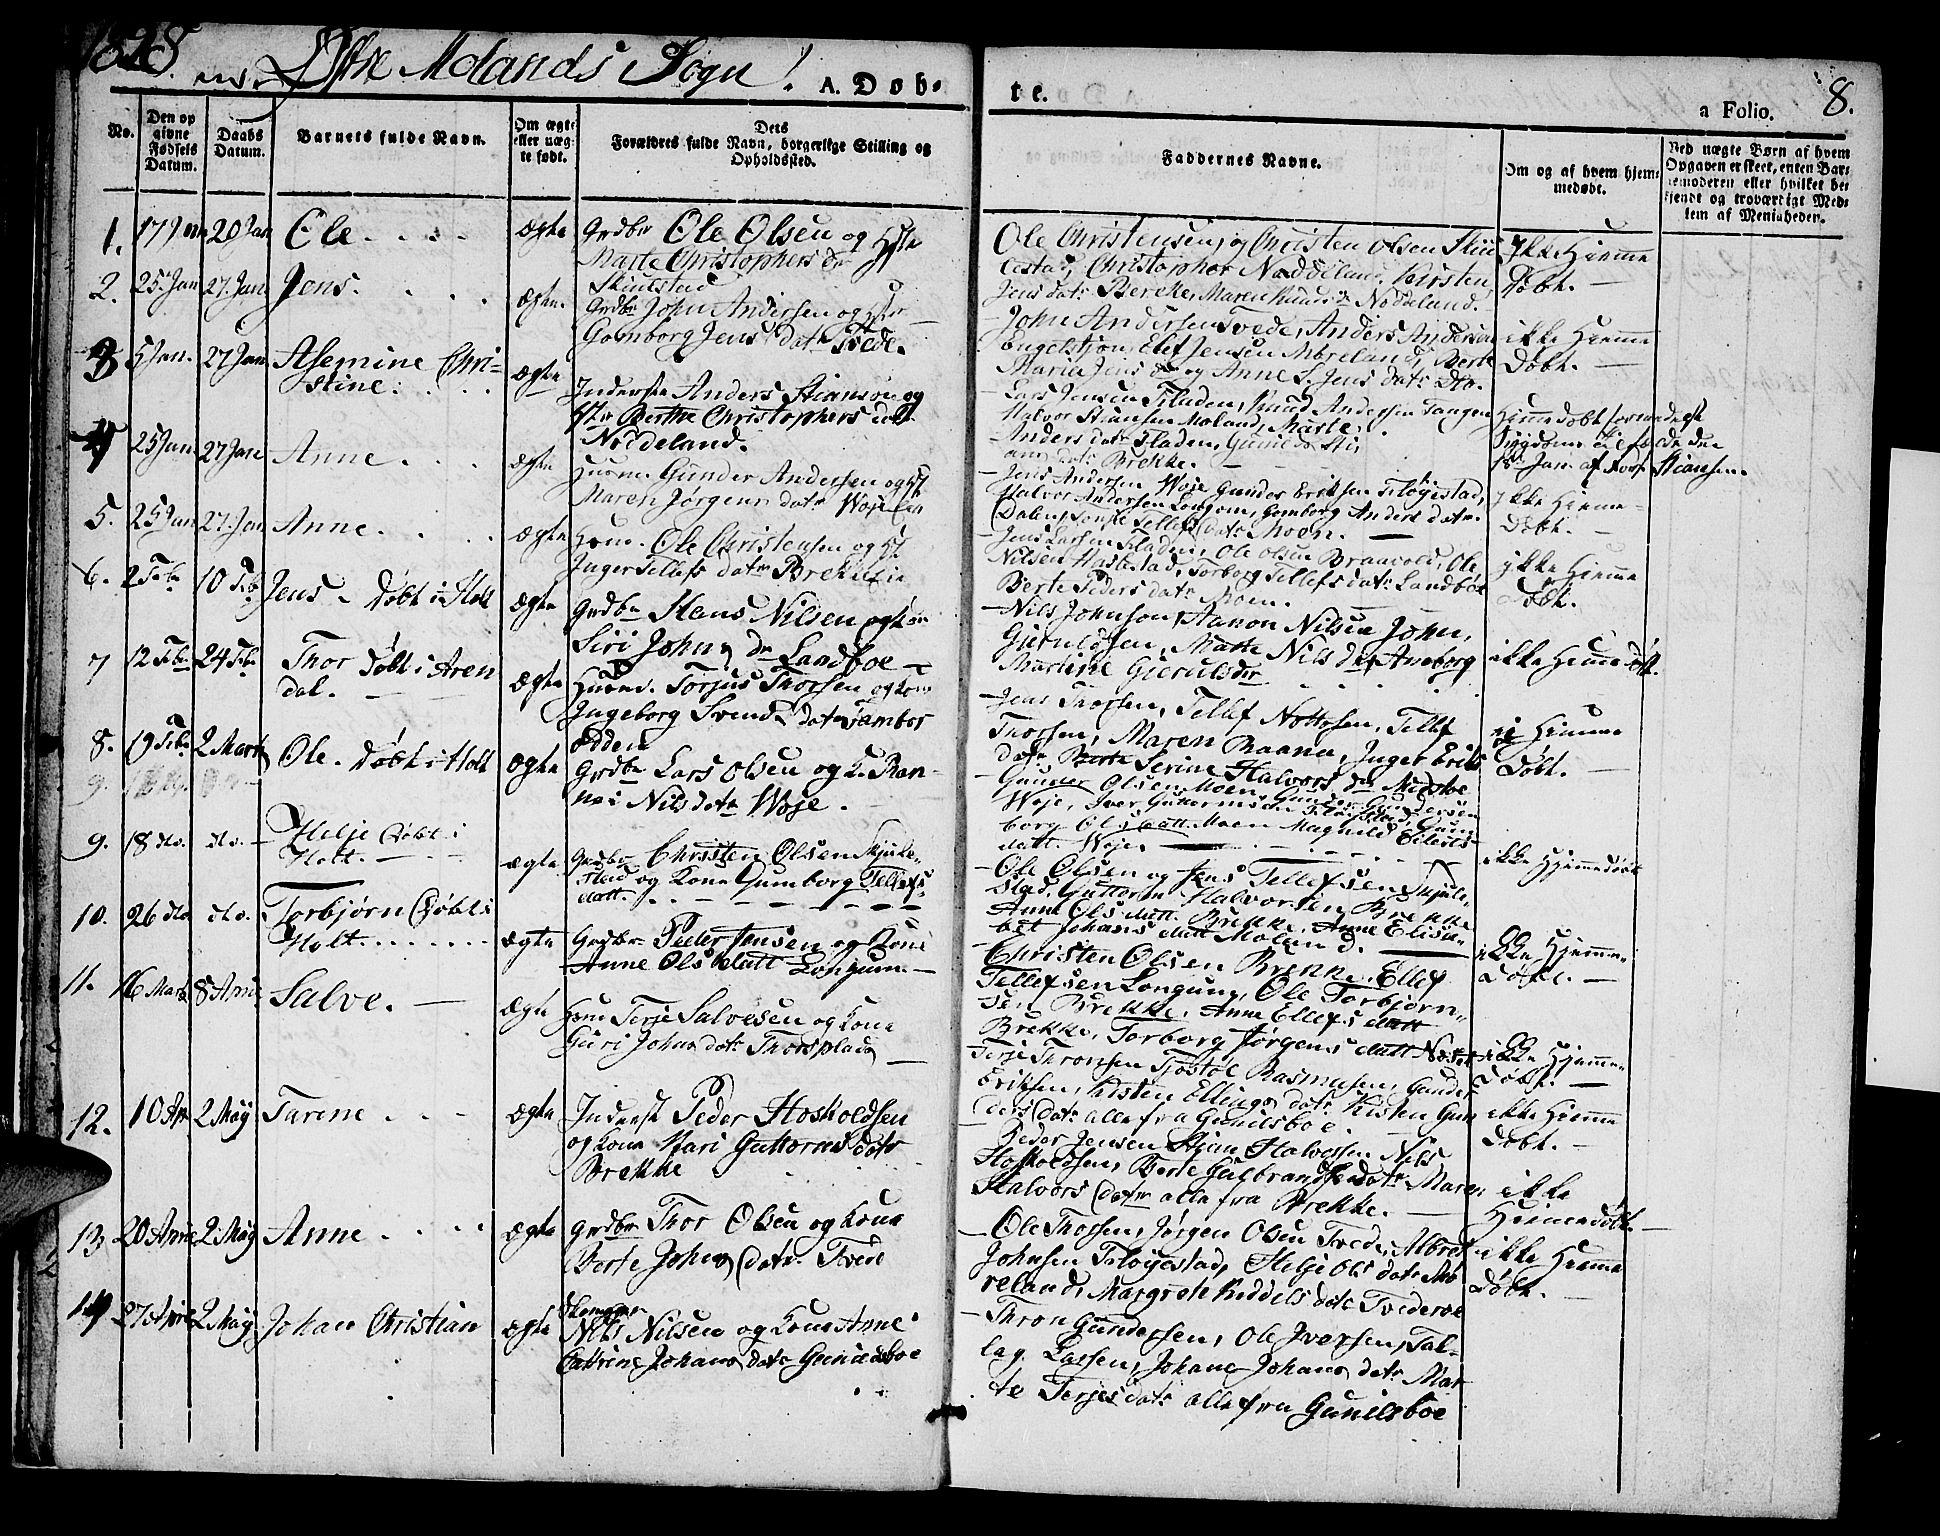 1828.
Østre Molands Sogn!
A. Døb-
te.
a Folio.
8.
No.
Den op
givne
Fødsels
Datum.
Daabs
Datum.
Barnets fulde Navn.
Om ægte
eller uæg-
te født.
Dets
Forældres fulde Navn, borgerlige Stilling og
Opholdssted.
Faddernes Navne.
Om og af hvem hjem-
medøbt.
Ved uægte Børn af hvem
Opgaven er skeet, enten Bar-
nemoderen eller hvilket be-
kjendt og troværdigt Med-
lem af Menigheden.
1. 17 Jan 20 Jan Ole ægte
Grdbr Ole Olsen og Hstr
Marte Christophers dr
Skiulstad
Ole Christensen, og Christen Olsen Skiu
lestad, Christopher Næddeland, Kirsten
Jens datr Brekke, Maren Knuds dr Nøddeland.
Ikke Hiemme
Døbt.
2. 25 Jan 27. Jan Jens. ægte.
Grdbr John Andersen og Hstr
Gomborg Jens datr Tvede.
John Andersen Tvede, Anders Andersen
Engelstjon, Elef Jensen Mørland, Berte
Marie Jens dr og Anne L. Jens datr Do.
ikke Hiemme
Døbt.
3 5 Jan. 27 Jan Asemine Chri-
stine. ægte
Inderste Anders Stiansøn og
Hstr Berthe Christophers datt
Nøddeland.
Lars Jensen Fladen, Knud Andersen Tangen
Halvor Stiansen Moland, Marte
Anders datr Fladen, Gunild Sti
ans datr Brekke.
Hiemmedøbt formedelst
Sygdoms Tilfælde den
18de Jan. af Stiansen.
4 25 Jan 27 Jan Anne ægte
Huusm. Gunder Andersen og H
Maren Jørgens datr Woje
Jens Andersen Woje Gunder Eriksen Fløgestad,
Halvor Andersen Longom, Gomborg Anders datr.
Dalen, Tonje Tellefs datr Moen.
Ikke Hiemme
Døbt.
5. 25 Jan 27. Jan Anne. ægte
Huusm. Ole Christensen og H
Inger Tellefs datr Brekke
Jens Larsen Fladen, Ole Olsen Braavold, Ole
Nilsen Haslestad, Torborg Tellefs datr Landbøe
Berte Peders datr Moen.
ikke Hiemme
Døbt.
6. 2 Febr 10 Feb Jens - Døbt i Holt ægte
Grdbr Hans Nilsen og Kone
Siri Johns dr Landboe
Nils Johnson, Aanon Nilsen John,
Gieruldsen, Marte Nils dr Aneborg
Martine Gieruls dr
ikke Hiemmedøbt.
7 12 Feb 24 Feb Thor Døbt i Aren
dal. ægte
Huusm. Torjus Thorsen og Kone
Ingeborg Svends datr Tambor
odden
Jens Thorsen, Tellef Nottosen, Tellef
Thorsen, Maren Raana, Inger Eriks
datr Serine Halvors dr Midtboe
ei Hiemme
Døbt.
8. 19 Feb 2 Marts Ole. Døbt i Holt ægte
Grdbr Lars Olsen og K. Ran-
nei Nils datr Woje.
Gunder Olsen Moen, Gunder Gundersen
Woje, Iver Guttormsen Fløistad, Gun
borg Ols datt. Moen Magnild Eilerts
datt. Woje.
9.
9. 18 do. do. Helje Døbt i
Holt. ægte
Grdbr Christen Olsen Skjule-
stad og Kone Gumborg Tellefs
datt.
Ole Olsen og Jens Tellefsen Skjule-
stad, Guttorm Halvorsen Brekke
Anne Ols datt. Brekke, Anne Elisa-
bet Johans datt Moland.
ikke Hjemmedøbt
10. 26 do do. Torbjørn Døbt i
Holt. ægte
Grdbr Peder Jensen og Kone
Anne Ols datt Longum.
Christen Olsen Brekke, Ellef
Tellefsen Longum, Ole Torbjørn-
sen Brekke, Anne Ellefs datt
Brekke, Torborg Jørgens datt Næset
ikke Hjemme-
Døbt.
11. 16 Marts 8 April Salve. ægte
Huusm Terje Salvesen og Kone
Guri Johns datr Thorsplads
Terje Thronsen Tjostol Rasmusen, Gunder
Eriksen, Kirsten Ellings datr Kirsten Gun
ders datr alle fra Gunilsboe.
ikke Hjemme-
Døbt.
12. 10 Apr 2 May Tarene ægte
Inderst Peder Hoskoldsen
og Kone Kari Guttorms datr
Brekke
Peder Jensen Stian Halvorsen Nils
Hoskoldsen, Berte Gulbrands datr Maren
Halvors datr alle fra Brekke.
ikke Hiemme
Døbt.
13 20 April 2 May Anne ægte
Grdbr Thor Olsen og Kone
Berte Johns datr. Tvede
Ole Thorsen, Jørgen Olsen Tvede, Albret
Johnsen Fløgestad, Helje Ols datr Mø
reland, Margrete Kiddels datr Tvederøe
ikke
Hiemmedøbt.
14 27 April 2 May Johan Christian ægte
Skomager
Nils Nilsen og Kone Anne
Cathrine Johans datr Gunildsboe
Thron Gundersen, Ole Iversen, Tal-
lag Larsen, Johane Johans datr Mar
te Terjes datr alle fra Gunilsboe
ikke Hiemme
Døbt.